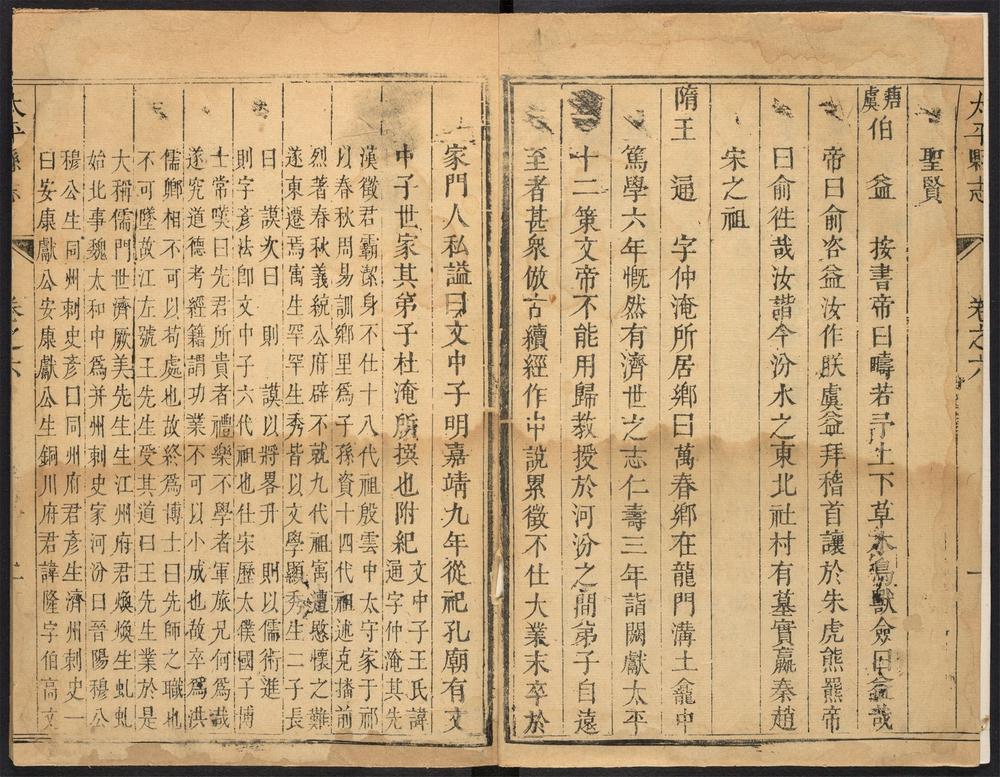 太平縣志
卷之六
一
聖賢
唐虞伯益　按書帝曰疇若予上下草木鳥獸僉曰益哉
帝曰俞咨益汝作朕虞益拜稽首讓於朱虎熊羆帝
曰俞徃哉汝諧今汾水之東北社村有墓實嬴秦趙
宋之祖
隋王通　字仲淹所居鄉曰萬春鄉在龍門溝土龕中
篤學六年慨然有濟世之志仁壽三年詣闕獻太平
十二策文帝不能用歸教授於河汾之間弟子自遠
至者甚衆倣古續經作中說累徵不仕大業末卒於
家門人私謚曰文中子明嘉靖九年從祀孔廟有文
中子世家其弟子杜淹所撰也附紀
文中子王氏諱
通字仲淹其先
漢徵君霸潔身不仕十八代祖殷雲中太守家于祁
以春秋周易訓鄉里爲子孫資十四代祖述克播前
烈著春秋義統公府辟不就九代祖寓遭愍懷之難
遂東遷焉寓生罕罕生秀皆以文學顯秀生二子長
曰　謨次曰　則　謨以將畧升　則以儒術進
則字彥法卽文中子六代祖也仕宋歷太僕國子博
士常嘆曰先君所貴者禮樂不學者軍旅兄何爲哉
遂究道德考經籍謂功業不可以小成也故卒爲洪
儒鄉相不可以苟處也故終爲博士曰先師之職也
不可墜故江左號王先生受其道曰王先生業於是
大稱儒門世濟厥美先生生江州府君煥煥生虬虬
始北事魏太和中爲并州刺史家河汾曰晉陽穆公
穆公生同州刺史彥曰同州府君彥生濟州刺史一
曰安康獻公安康獻公生銅川府君諱隆字伯高文
太平縣志
卷之六